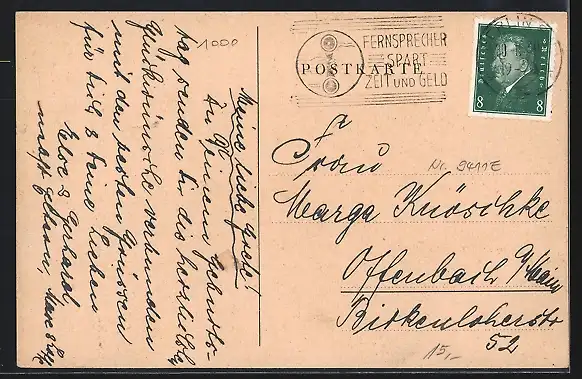 1000
Meine liebe Grete!
Zu Deinem Geburts-
tag senden Dir die herzlichsten
Glückwünsche verbunden
mit den besten Grüssen
für Dich & Deine Lieben
Else & Gerhard
FERNSPRECHER
SPART
ZEIT UND GELD
POSTKARTE
Deutsches Reich
8 8
Frau
Nr. 9411E
Marga Knöschke
Offenbach a/Main
Birkenloherstr
52
15,-